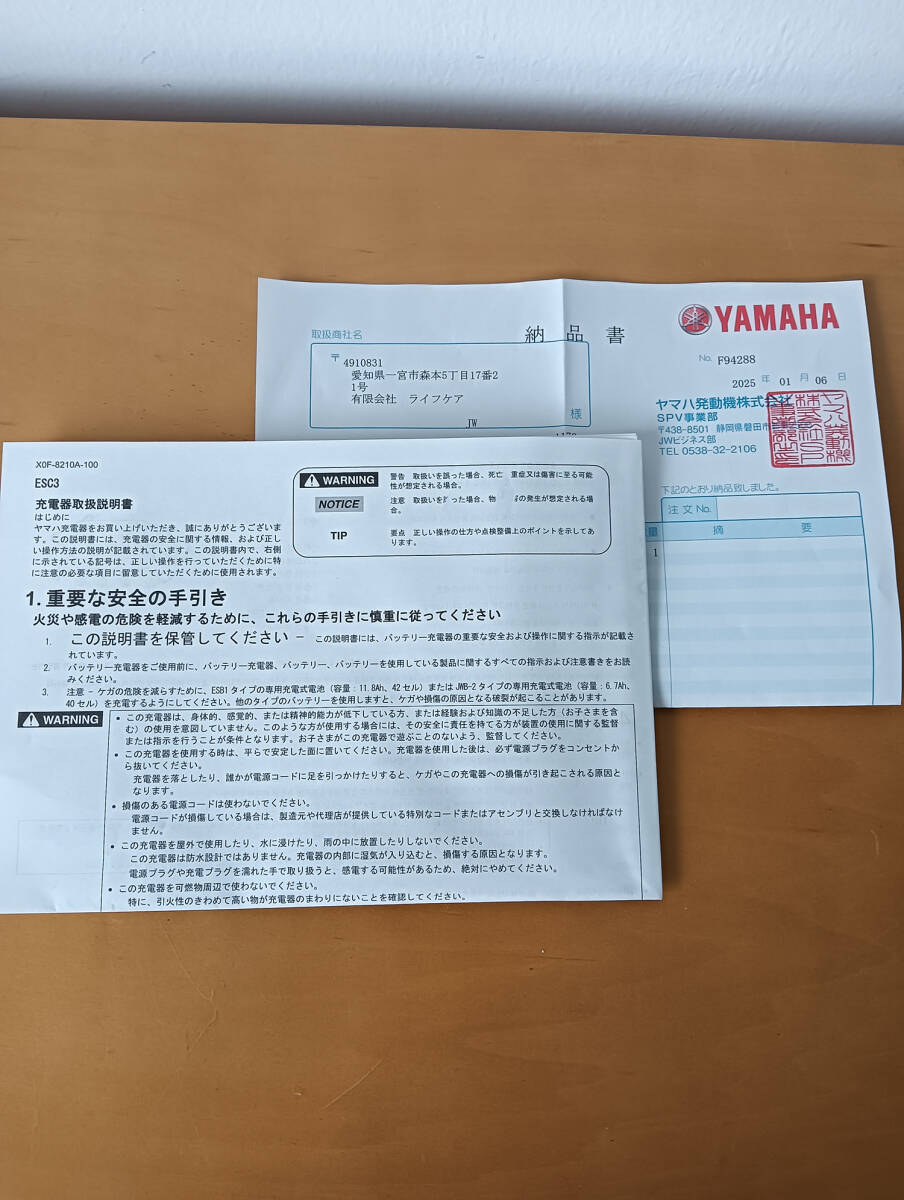 取扱商社名
納品書
YAMAHA
〒 4910831
愛知県一宮市森本5丁目17番2
1号
有限会社 ライフケア
様
JW
No. F94288
2025 年 01 月 06 日
ヤマハ発動機株式会社
SPV事業部
〒438-8501 静岡県磐田市
JWビジネス部
TEL 0538-32-2106
下記のとおり納品致しました。
注文No.
量 摘 要
1
X0F-8210A-100
ESC3
充電器取扱説明書
はじめに
ヤマハ充電器をお買い上げいただき、誠にありがとうございま
す。この説明書には、充電器の安全に関する情報、および正し
い操作方法の説明が記載されています。この説明書内で、右側
に示されている記号は、正しい操作を行っていただくために特
に注意の必要な項目に留意していただくために使用されます。
WARNING
警告 取扱いを誤った場合、死亡 重症又は傷害に至る可能
性が想定される場合。
NOTICE
注意 取扱いを った場合、物 の発生が想定される場
合。
TIP
要点 正しい操作の仕方や点検整備上のポイントを示してあ
ります。
1. 重要な安全の手引き
火災や感電の危険を軽減するために、これらの手引きに慎重に従ってください
1. この説明書を保管してください － この説明書には、バッテリー充電器の重要な安全および操作に関する指示が記載さ
れています。
2. バッテリー充電器をご使用前に、バッテリー充電器、バッテリー、バッテリーを使用している製品に関するすべての指示および注意書きをお読
みください。
3. 注意 － ケガの危険を減らすために、ESB1タイプの専用充電式電池（容量：11.8Ah、42セル）またはJWB-2タイプの専用充電式電池（容量：6.7Ah、
40セル）を充電するようにしてください。他のタイプのバッテリーを使用しますと、ケガや損傷の原因となる破裂が起こることがあります。
WARNING
• この充電器は、身体的、感覚的、または精神的能力が低下している方、または経験および知識の不足した方（お子さまを含
む）の使用を意図していません。このような方が使用する場合には、その安全に責任を持てる方が装置の使用に関する監督
または指示を行うことが条件となります。お子さまがこの充電器で遊ぶことのないよう、監督してください。
• この充電器を使用する時は、平らで安定した面に置いてください。充電器を使用した後は、必ず電源プラグをコンセントか
ら抜いてください。
充電器を落としたり、誰かが電源コードに足を引っかけたりすると、ケガやこの充電器への損傷が引き起こされる原因と
なります。
• 損傷のある電源コードは使わないでください。
電源コードが損傷している場合は、製造元や代理店が提供している特別なコードまたはアセンブリと交換しなければなけ
ません。
• この充電器を屋外で使用したり、水に浸けたり、雨の中に放置したりしないでください。
この充電器は防水設計ではありません。充電器の内部に湿気が入り込むと、損傷する原因となります。
電源プラグや充電プラグを濡れた手で取り扱うと、感電する可能性があるため、絶対にやめてください。
• この充電器を可燃物周辺で使わないでください。
特に、引火性のきわめて高い物が充電器のまわりにないことを確認してください。